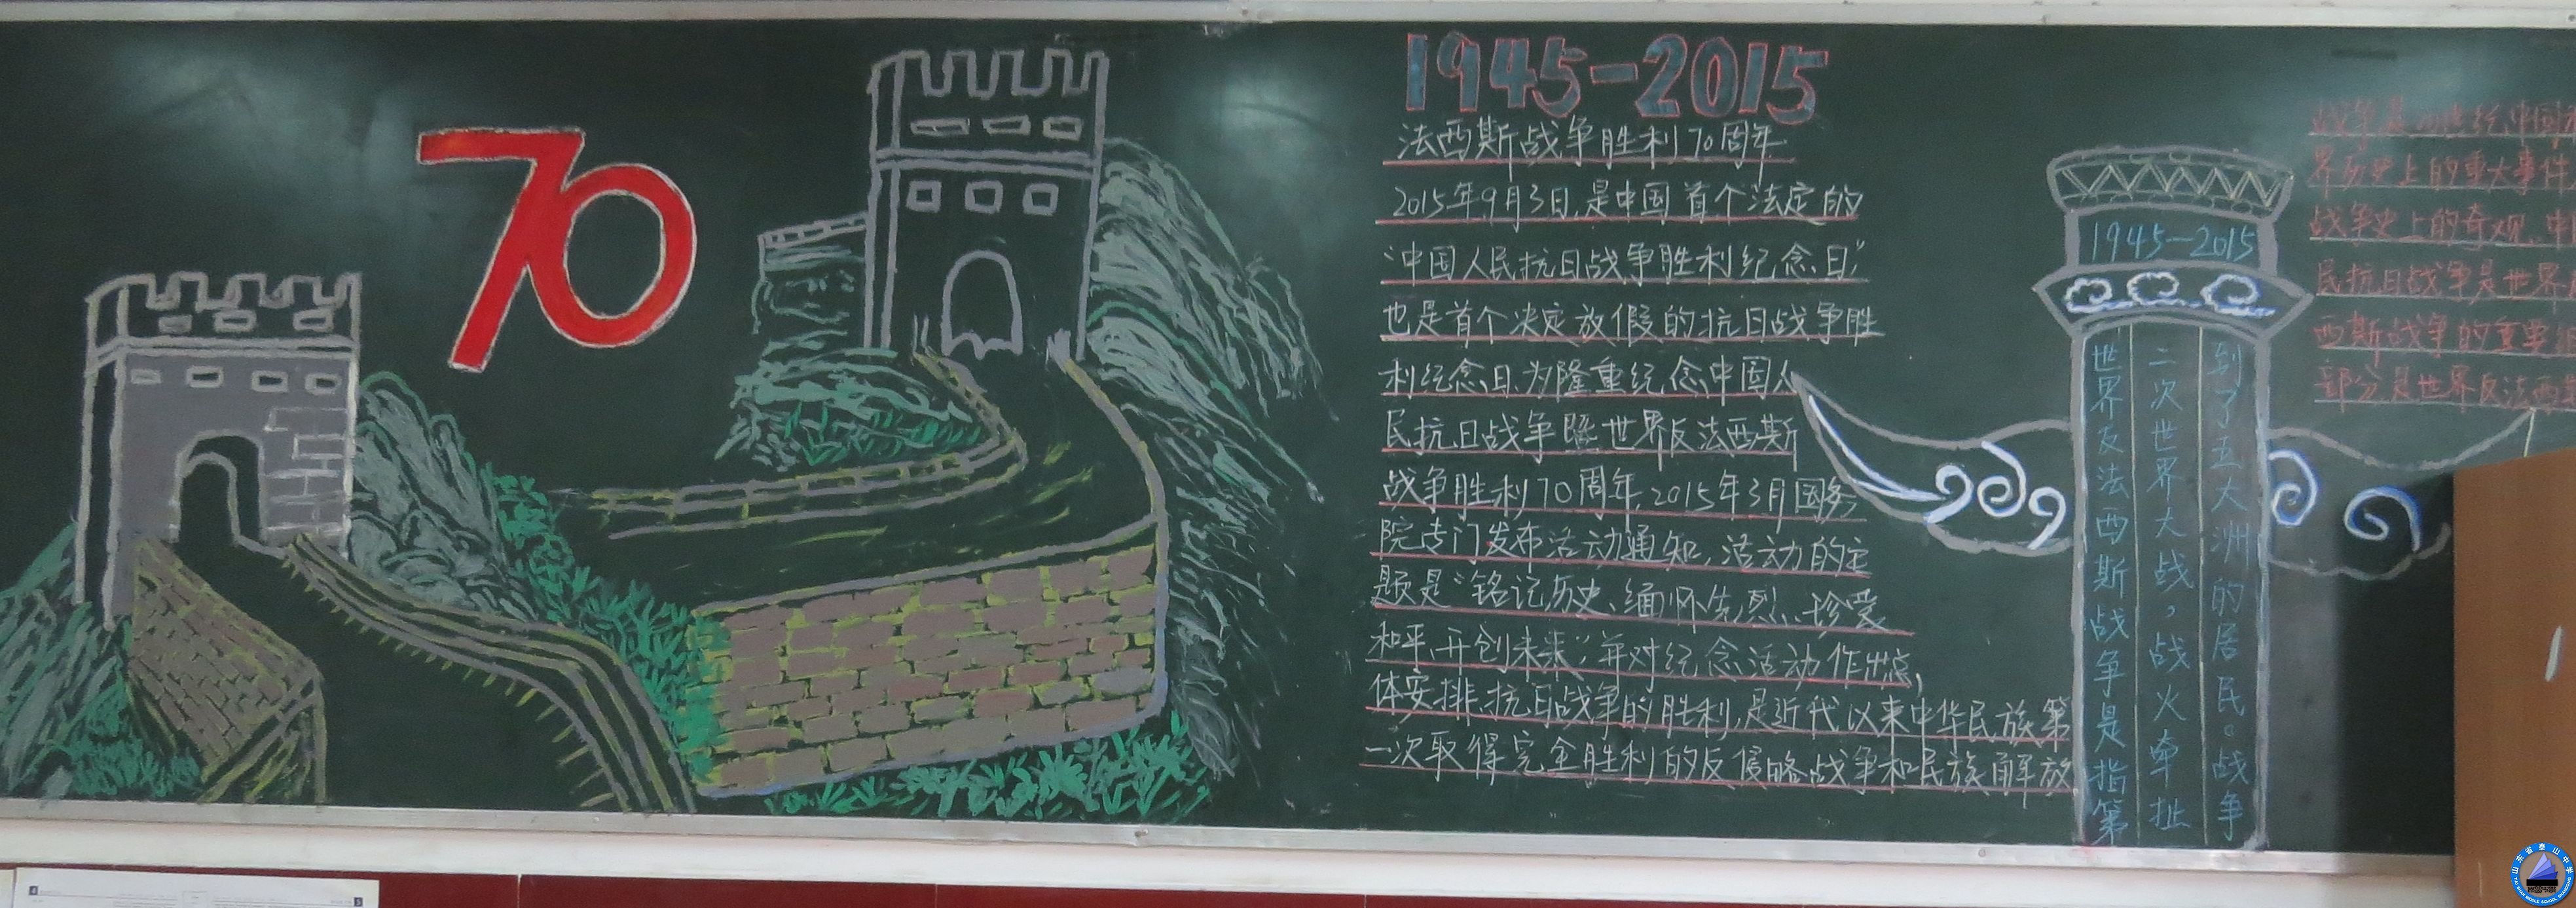 70
1945-2015
法西斯战争胜利70周年
2015年9月3日,是中国首个法定的
“中国人民抗日战争胜利纪念日”
也是首个决定放假的抗日战争胜
利纪念日.为隆重纪念中国人
民抗日战争暨世界反法西斯
战争胜利70周年,2015年3月国务
院专门发布活动通知,活动的主
题是“铭记历史、缅怀先烈、珍爱
和平、开创未来”,并对纪念活动作出总
体安排.抗日战争的胜利,是近代以来中华民族第
一次取得完全胜利的反侵略战争和民族解放
1945-2015
世界反法西斯战争是指第
二次世界大战,战火牵扯
到了五大洲的居民。战争
战争是 世纪中国
界历史上的重大事件
战争史上的奇观,中
民抗日战争是世界
西斯战争的重要组
部分,是世界反法西
山东省泰山中学